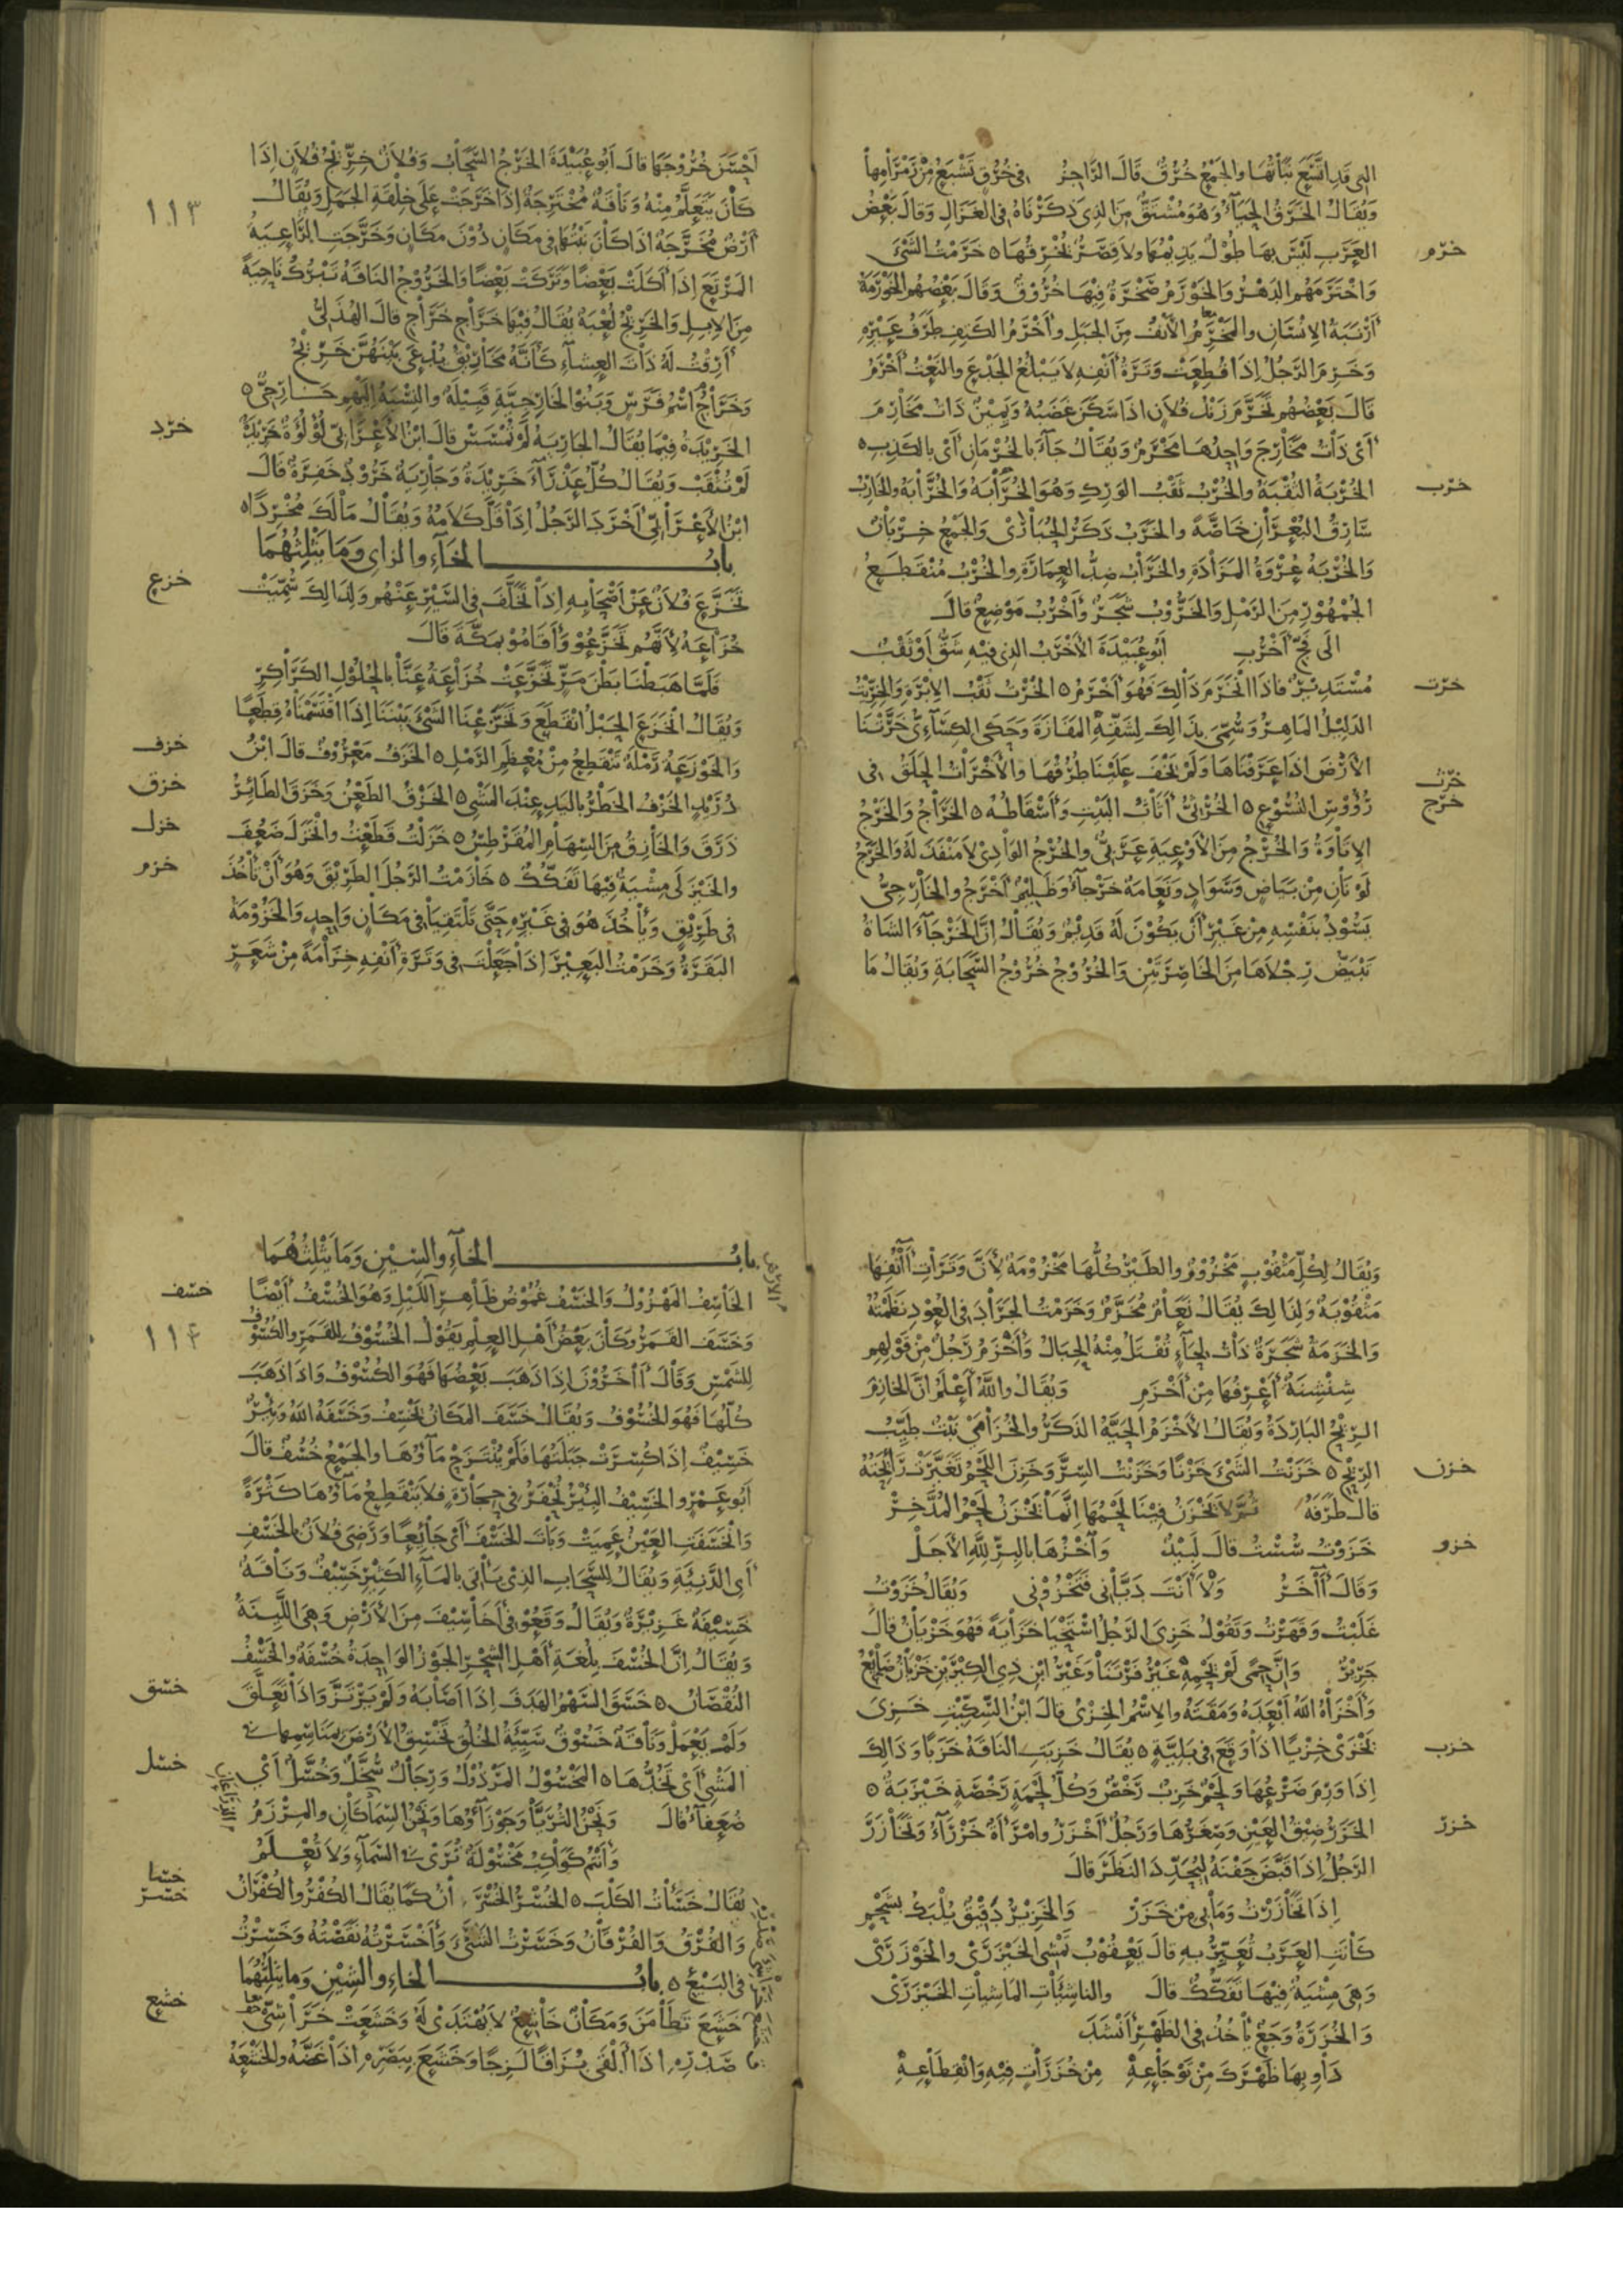 التي قد اتسع نباتها والجمع خُرُق قال الراجز في خرق تشبع من رمرامها
ويقال الخرق الحياء وهو مشتق من الذي ذكرناه في الغزال وقال بعض
خرم
العرب ليس بها طول يذيمها ولا قصر يخرقها ٥ خرمت الشيء
واخترمهم الدهر والخورم صخرة فيها خروق وقال بعضهم الخورمة
أرنبة الإنسان والمخرم الأنف من الجبل وأخرم الكتف طرف عيره
وخرم الرجل إذا قطعت وترة أنفه لا يبلغ الجدع والنعت أخرم
قال بعضهم تخرم زند فلان إذا سكن غضبه ويمين ذات مخارم
أي ذات مخارج واحدها مخرم ويقال جاء بالخرمان أي بالكذب ٥
خرب
الخربة الثقبة والخرب ثقب الورك وهو الخرابة والخرابة والخارب
سارق البعران خاصة والخرب ذكر الحبارى والجمع خربان
والخربة عروة المزادة والخراب ضد العمارة والخرب منقطع
الجمهور من الرمل والخروب شجر وأخرب موضع قال
الى فج أخرب أبو عبيدة الأخرب الذي فيه شق أو ثقب
خرت
مستدير فإذا انخرم ذالك فهو أخرم ٥ الخرت ثقب الإبرة والخريت
الدليل الماهر وسمي بذالك لشقه المفازة وحكى الكسائي خرتنا
الأرض إذا عرفناها ولم تخف علينا طرقها والأخرات الحلق في
خرث
خرج
رؤوس النسوع ٥ الخرثي أثاث البيت وأسقاطه ٥ الخراج والخرج
الإتاوة والخرج من الأوعية عربي والخرج الوادي لا منفذ له والخرج
لونان من بياض وسواد ونعامة خرجاء وظليم أخرج والخارجي
يسود بنفسه من غير أن يكون له قديم ويقال إن الخرجاء الشاة
تبيض رجلاها من الخاصرتين والخروج خروج السحابة ويقال ما
أحسن خروجها قال أبو عبيدة الخرج السحاب وفلان خريج فلان إذا
١١٣
كان يتعلم منه وناقة مخترجة إذا خرجت على خلقة الجمل ويقال
أرض مخرجة إذا كان نبتها في مكان دون مكان وخرجت الراعية
المرتع إذا أكلت بعضا وتركت بعضا والخروج الناقة تبرك ناحية
من الإبل والخريج لعبة يقال فيها خراج خراج قال الهذلي
أرقت له ذات العشاء كأنه مخاريق يدعى بينهن خريج
وخراج اسم فرس وبنو الخارجية قبيلة والنسبة إليهم خارجي ٥
خرد
الخريدة فيما يقال الجارية لم تمسس قال ابن الأعرابي لؤلؤة خريدة
لم تثقب ويقال كل عذراء خريدة وجارية خرود خفرة قال
ابن الأعرابي أخرد الرجل إذا قل كلامه ويقال مالك مخردا ٥
باب الخاء والزاي وما يثلثهما
خزع
تخزع فلان عن أصحابه إذا تخلف في السير عنهم ولذالك سميت
خزاعة لأنهم تخزعوا وأقاموا بمكة قال
فلما هبطنا بطن مر تخزعت خزاعة عنا بالحلول الكراكر
ويقال انخزع الحبل انقطع وتخزعنا الشيء بيننا إذا اقتسمناه قطعا
خزف
والخوزعة رملة تنقطع من معظم الرمل ٥ الخزف معروف قال ابن
خزق
دريد الخزف الخطر باليد عند المشي ٥ الخزق الطعن وخزق الطائر
خزل
ذرق والخازق من السهام المقرطس ٥ خزلت قطعت وانخزل ضعف
خزم
والخيزلى مشية فيها تفكك ٥ خازمت الرجل الطريق وهو أن تأخذ
في طريق ويأخذ هو في غيره حتى تلتقيا في مكان واحد والخزومة
البقرة وخزمت البعير إذا جعلت في وترة أنفه خزامة من شعر
ويقال لكل مثقوب مخزوم والطير كلها مخزومة لأن وترات آنفها
مثقوبة ولذالك يقال نعام مخزم وخزمت الجراد في العود نظمته
والخزمة شجرة ذات لحاء تفتل منه الحبال وأخزم رجل من قولهم
شنشنة أعرفها من أخزم ويقال والله أعلم إن الخازم
الريح الباردة ويقال الأخزم الحية الذكر والخزامى نبت طيب
خزن
الريح ٥ خزنت الشيء خزنا وخزنت السر وخزن اللحم تغيرت رائحته
قال طرفة ثم لا يخزن فينا لحمها إنما يخزن لحم المدخر
خزو
خزوت سست قال لبيد وآخزها بالبر لله الأجل
وقال آخر ولا أنت دياني فتخزوني ويقال خزوت
غلبت وقهرت وتقول خزي الرجل استحيا خزاية فهو خزيان قال
جرير وإن حمى لم يحمه غير فرتنا وغير ابن ذي الكيرين خزيان ضائع
وأخزاه الله أبعده ومقته والاسم الخزي قال ابن السكيت خزي
خزب
يخزى خزيا إذا وقع في بلية ٥ يقال خزبت الناقة خزبا وذالك
إذا ورم ضرعها ولحم خزب رخص وكل لحمة رخصة خيزبة ٥
خزر
الخزر ضيق العين وصغرها ورجل أخزر وامرأة خزراء وتخازر
الرجل إذا قبض جفنه ليحدد النظر قال
إذا تخازرت وما بي من خزر والخزير دقيق يلبك بشحم
كانت العرب تعير به قال يعقوب تمشى الخيزرى والخوزرى
وهي مشية فيها تفكك قال والناشئات الماشيات الخيزرى
والخزرة وجع يأخذ في الظهر أنشد
داو بها ظهرك من توجاعه من خزرات فيه وانقطاعه
باب الخاء والسين وما يثلثهما
خسف
الخاسف المهزول والخسف غموض ظاهر الليل وهو الخسف أيضا
١١٤
وخسف القمر وكان بعض أهل العلم يقول الخسوف للقمر والكسوف
للشمس وقال آخرون إذا ذهب بعضها فهو الكسوف وإذا ذهب
كلها فهو الخسوف ويقال خسف المكان يخسف وخسفه الله وبئر
خسيف إذا كسرت جبلتها فلم ينتزح ماؤها والجمع خسف قال
أبو عمرو الخسيف البئر تحفر في حجارة فلا ينقطع ماؤها كثرة
وانخسفت العين عميت وبات الخسف أي جائعا ورضي فلان بالخسف
أي الدنية ويقال للسحاب الذي يأتي بالماء الكثير خسيف وناقة
خسيفة غزيرة ويقال وقعوا في أخاسيف من الأرض وهي اللينة
ويقال إن الخسف بلغة أهل الشحر الجوز الواحدة خسفة والخسف
خسق
النقصان ٥ خسق السهم الهدف إذا أصابه ولم يرتز وإذا تعلق
ولم يعمل وناقة خسوق سيئة الخلق تخسق الأرض بمناسمها في
خسل
المشي أي تخدها ٥ المخسول المرذول ورجال سخل وخسل أي
ضعفاء قال ونحن الثريا وجوزاؤها ونحن السماكان والمرزم
وأنتم كواكب مخسولة ترى في السماء ولا تعلم
خسا
خسر
يقال خسأت الكلب ٥ الخسر الخسران كما يقال الكفر والكفران
والفرق والفرقان وخسرت الشيء وأخسرته نقصته وخسرت
في البيع ٥ باب الخاء والشين وما يثلثهما
خشع
خشع تطأمن ومكان خاشع لا يهتدى له وخشعت خراشي
صدره إذا ألقى بزاقا لزجا وخشع ببصره إذا غضه والخشعة